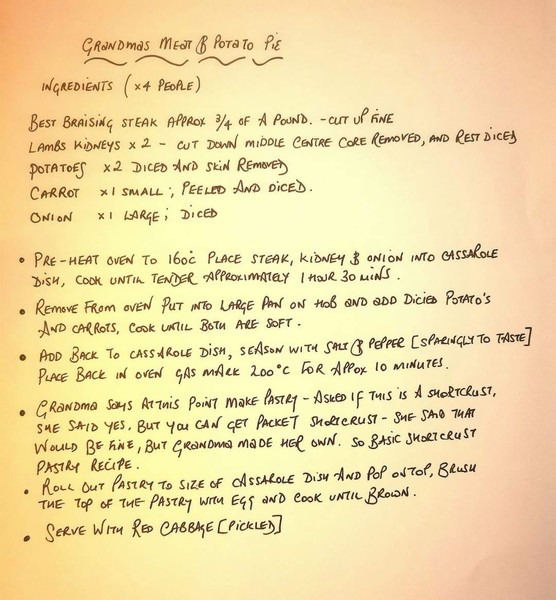 GRANDMAS MEAT & POTATO PIE
INGREDIENTS (x4 PEOPLE)
BEST BRAISING STEAK APPROX 3/4 OF A POUND. - CUT UP FINE
LAMBS KIDNEYS x 2 - CUT DOWN MIDDLE CENTRE CORE REMOVED, AND REST DICED
POTATOES x2 DICED AND SKIN REMOVED
CARROT x1 SMALL; PEELED AND DICED.
ONION x1 LARGE; DICED
• PRE-HEAT OVEN TO 160°C PLACE STEAK, KIDNEY & ONION INTO CASSAROLE
DISH, COOK UNTIL TENDER APPROXIMATELY 1 HOUR 30 MINS.
• REMOVE FROM OVEN PUT INTO LARGE PAN ON HOB AND ADD DICIED POTATO'S
AND CARROTS, COOK UNTIL BOTH ARE SOFT.
• ADD BACK TO CASSAROLE DISH, SEASON WITH SALT & PEPPER [SPARINGLY TO TASTE]
PLACE BACK IN OVEN GAS MARK 200°C FOR APPOX 10 MINUTES.
• GRANDMA SAYS AT THIS POINT MAKE PASTRY - ASKED IF THIS IS A SHORTCRUST,
SHE SAID YES, BUT YOU CAN GET PACKET SHORTCRUST - SHE SAID THAT
WOULD BE FINE, BUT GRANDMA MADE HER OWN. SO BASIC SHORTCRUST
PASTRY RECIPE.
• ROLL OUT PASTRY TO SIZE OF CASSAROLE DISH AND POP ON TOP, BRUSH
THE TOP OF THE PASTRY WITH EGG AND COOK UNTIL BROWN.
• SERVE WITH RED CABBAGE [PICKLED]